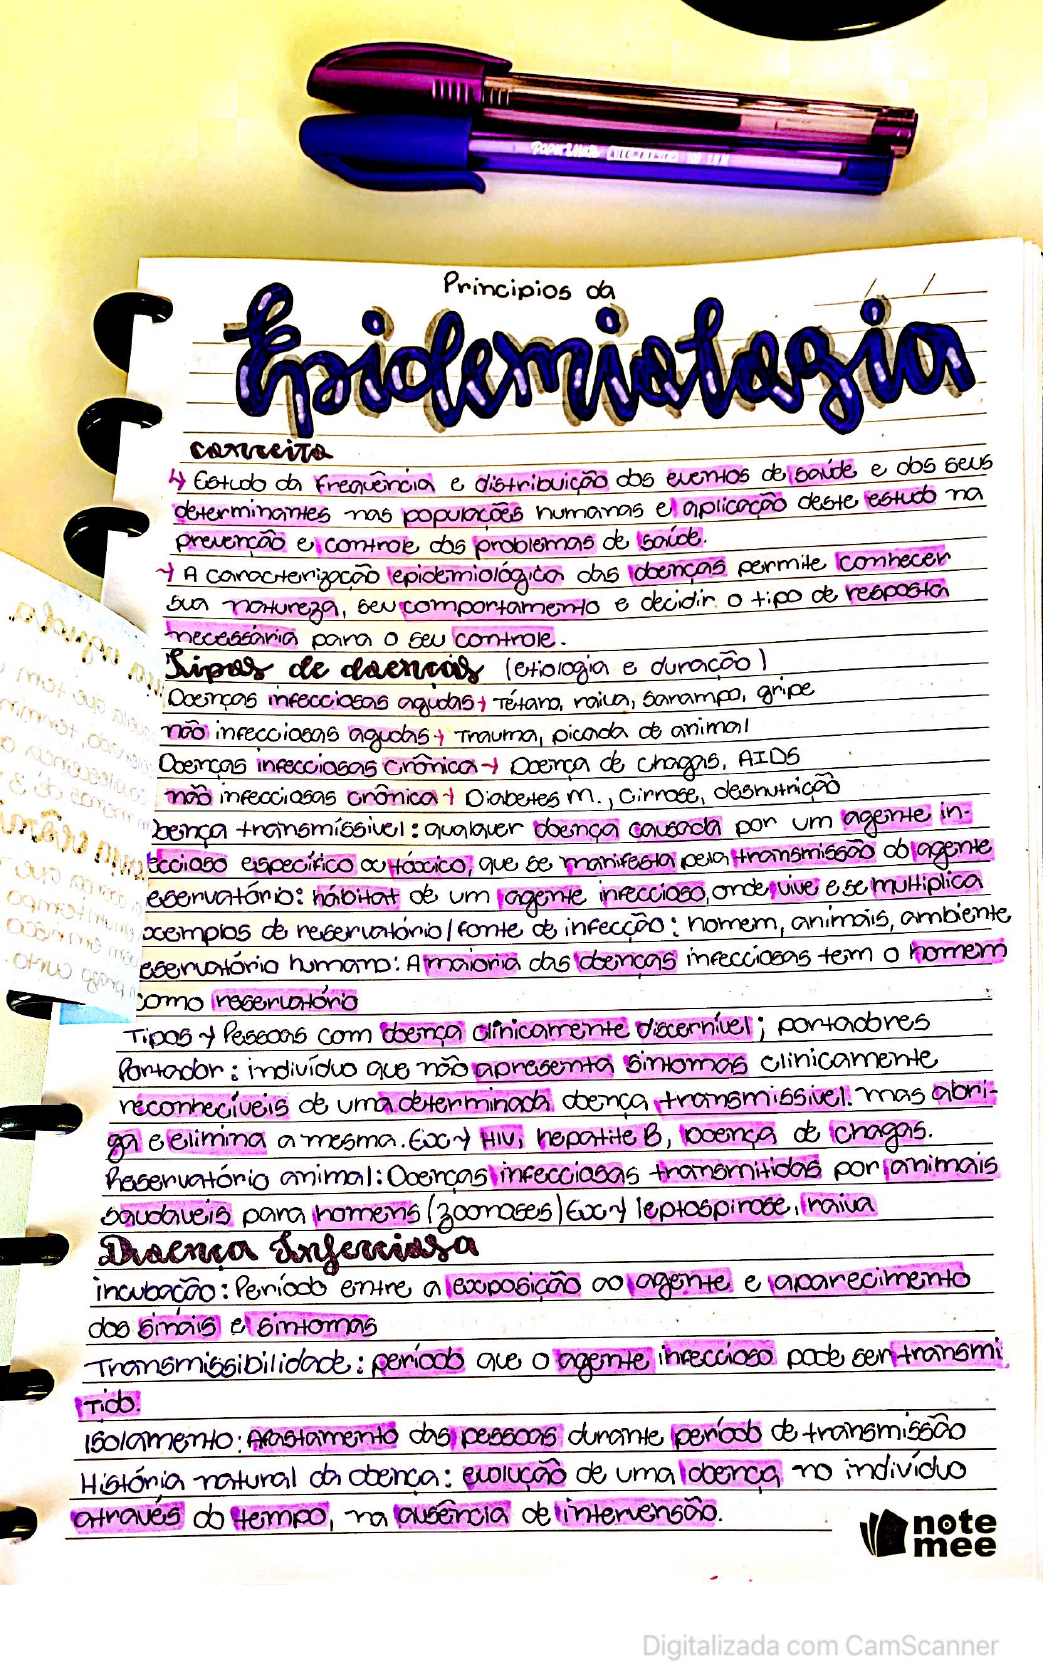 Principios da
Epidemiologia
conceito
↳ Estudo da frequência e distribuição dos eventos de saúde e dos seus
determinantes nas populações humanas e aplicação deste estudo na
prevenção e controle dos problemas de saúde.
→ A caracterização epidemiológica das doenças permite conhecer
sua natureza, seu comportamento e decidir o tipo de resposta
necessária para o seu controle.
Tipos de doenças (etiologia e duração)
Doenças infecciosas agudas → Tétano, raiva, sarampo, gripe
não infecciosas agudas → Trauma, picada de animal
Doenças infecciosas crônica → Doença de chagas, AIDS
não infecciosas crônica → Diabetes M., Cirrose, desnutrição
oença transmíssivel: qualquer doença causada por um agente in-
eccioso específico ou tóxico, que se manifesta pela transmissão do agente
eservatório: hábitat de um agente infeccioso, onde vive e se multiplica
xemplos de reservatório/fonte de infecção: homem, animais, ambiente
eservatório humano: A maioria das doenças infecciosas tem o homem
como reservatório
Tipos → Pessoas com doença clinicamente discernível; portadores
Portador: indivíduo que não apresenta sintomas clinicamente
reconhecíveis de uma determinada doença transmissível. mas abri-
ga e elimina a mesma. Ex → HIV, hepatite B, Doença de chagas.
Reservatório animal: Doenças infecciosas transmitidas por animais
saudáveis para homens (zoonoses) Ex → leptospirose, raiva
Doença Infecciosa
incubação: Período entre a exposição ao agente e aparecimento
dos sinais e sintomas
Transmissibilidade: período que o agente infeccioso pode ser transmi
tido.
Isolamento: Afastamento das pessoas durante período de transmissão
História natural da doença: evolução de uma doença no indivíduo
através do tempo, na ausência de intervensão.
note
mee
Digitalizada com CamScanner